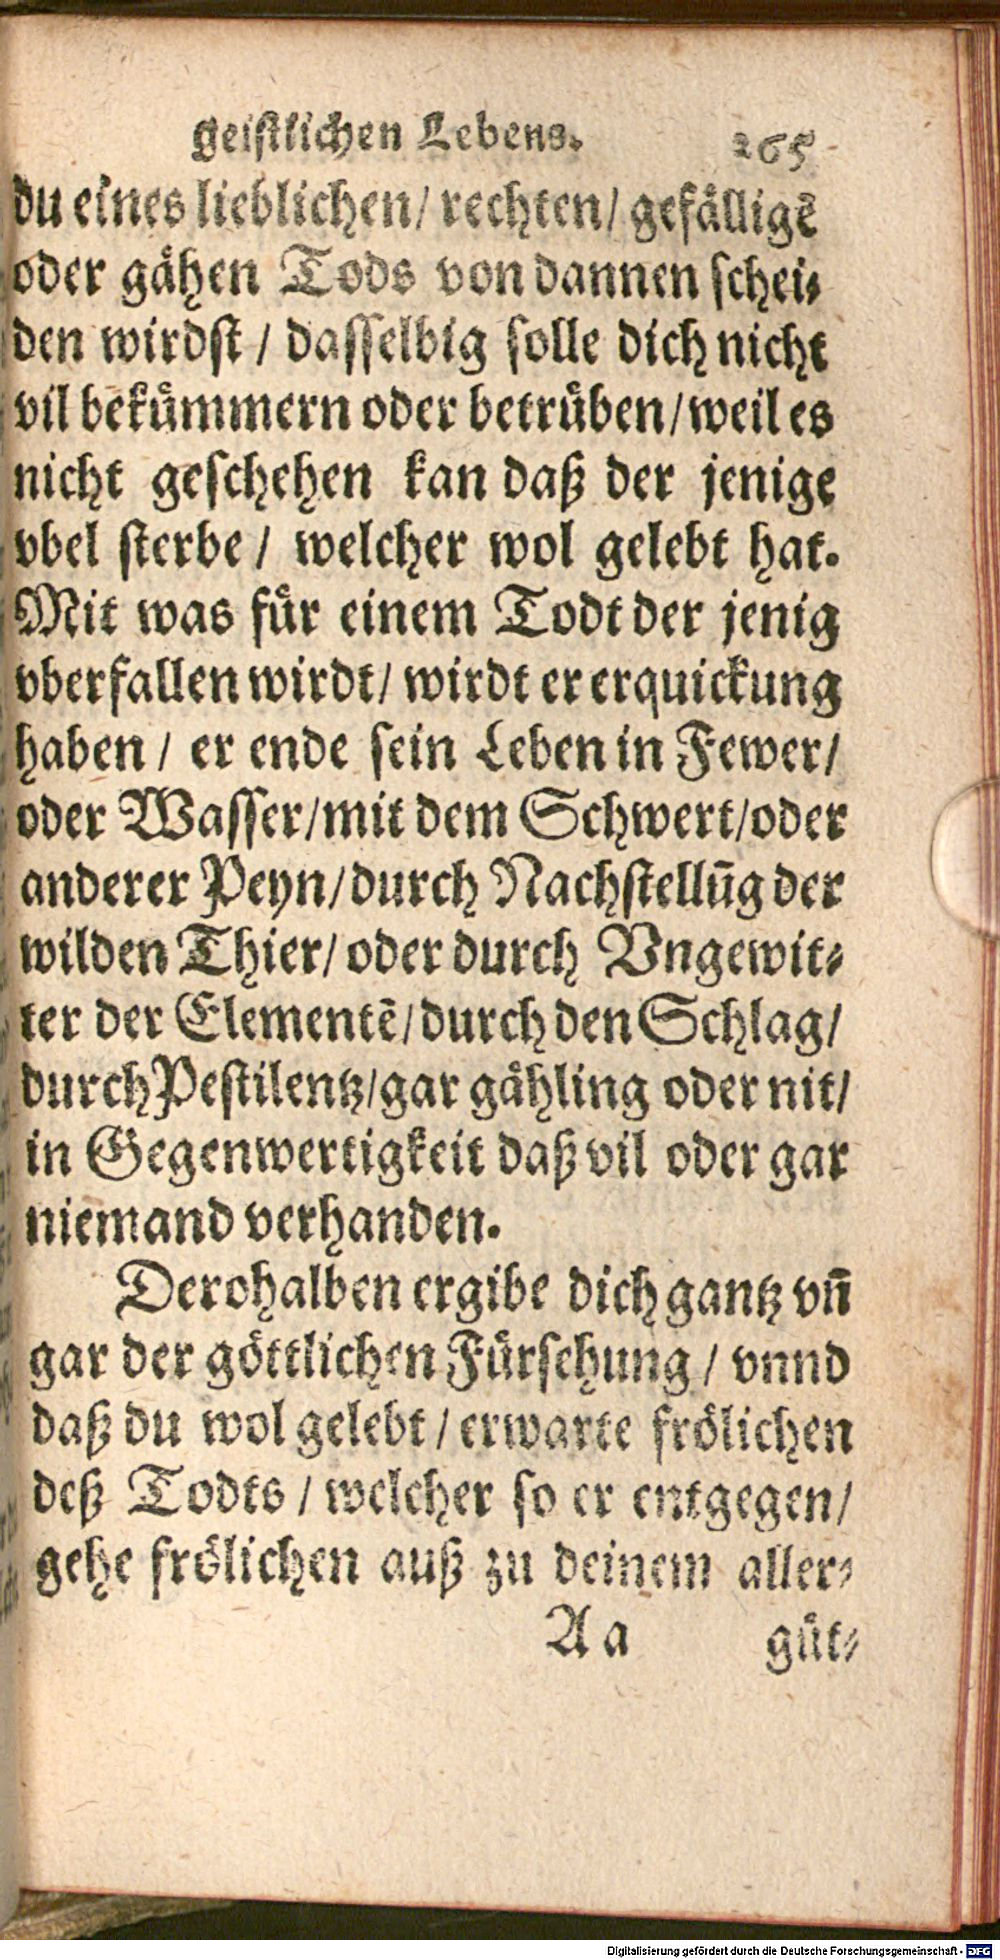 geistlichen Lebens. 265
du eines lieblichen/ rechten/ gefälligē
oder gähen Tods von dannen schei-
den wirdst / dasselbig solle dich nicht
vil bekümmern oder betrüben/ weil es
nicht geschehen kan daß der jenige
vbel sterbe / welcher wol gelebt hat.
Mit was für einem Todt der jenig
vberfallen wirdt/ wirdt er erquickung
haben / er ende sein Leben in Fewer/
oder Wasser/mit dem Schwert/oder
anderer Peyn/durch Nachstellūg der
wilden Thier/ oder durch Vngewit-
ter der Elementē/durch den Schlag/
durch Pestilentz/gar gähling oder nit/
in Gegenwertigkeit daß vil oder gar
niemand verhanden.
Derohalben ergibe dich gantz vn̄
gar der göttlichen Fürsehung / vnnd
daß du wol gelebt / erwarte frölichen
deß Todts / welcher so er entgegen/
gehe frölichen auß zu deinem aller-
Aa güt-
Digitalisierung gefördert durch die Deutsche Forschungsgemeinschaft - DFG